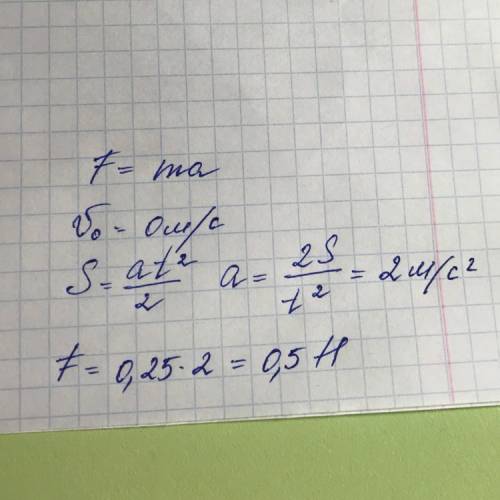 F = ma
υ₀ = 0 м/с
S = at²/2 a = 2S/t² = 2 м/с²
F = 0,25·2 = 0,5 Н